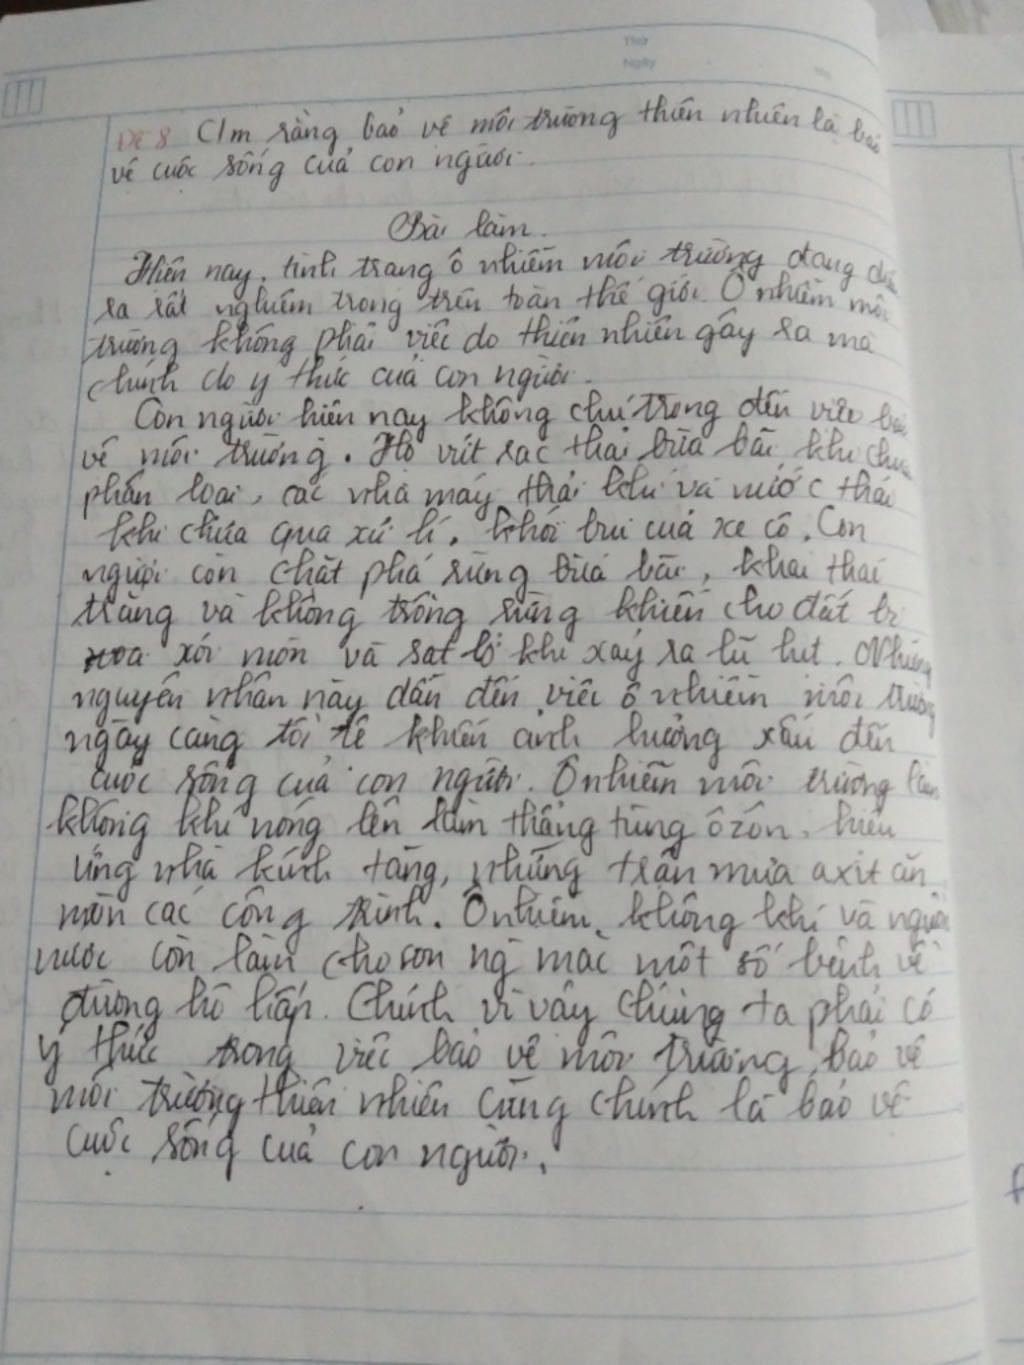 Thứ
Ngày
Đề 8 C/m rằng bảo vệ môi trường thiên nhiên là bảo
vệ cuộc sống của con người.
Bài làm.
Hiện nay, tình trạng ô nhiễm môi trường đang diễn
ra rất nghiêm trọng trên toàn thế giới. Ô nhiễm môi
trường không phải việc do thiên nhiên gây ra mà
chính do ý thức của con người.
Con người hiện nay không chú trọng đến việc bảo
vệ môi trường. Họ vứt rác thải bừa bãi khi chưa
phân loại, các nhà máy thải khí và nước thải
khi chưa qua xử lí, khói bụi của xe cộ. Con
người còn chặt phá rừng bừa bãi, khai thác
trắng và không trồng rừng khiến cho đất bị
xói mòn và sạt lở khi xảy ra lũ lụt. Những
nguyên nhân này dẫn đến việc ô nhiễm môi trường
ngày càng tồi tệ khiến ảnh hưởng xấu đến
cuộc sống của con người. Ô nhiễm môi trường làm
không khí nóng lên làm thủng tầng ôzôn, hiệu
ứng nhà kính tăng, những trận mưa axit ăn
mòn các công trình. Ô nhiễm không khí và nguồn
nước còn làm cho con ng mắc một số bệnh về
đường hô hấp. Chính vì vậy chúng ta phải có
ý thức trong việc bảo vệ môi trường, bảo vệ
môi trường thiên nhiên cũng chính là bảo vệ
cuộc sống của con người.